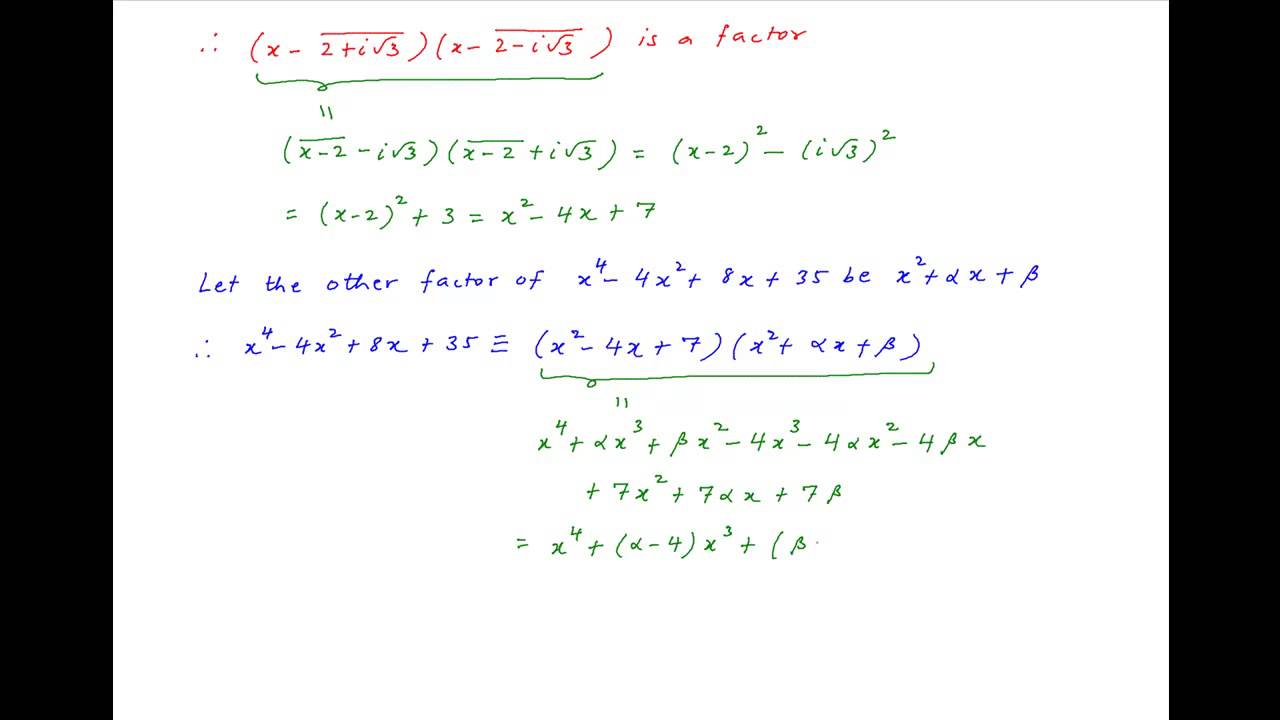 ∴ (x − 2+i√3)(x − 2−i√3) is a factor
॥
(x−2 − i√3)(x−2 + i√3) = (x−2)² − (i√3)²
= (x−2)² + 3 = x² − 4x + 7
Let the other factor of x⁴ − 4x² + 8x + 35 be x² + αx + β
∴ x⁴ − 4x² + 8x + 35 ≡ (x² − 4x + 7)(x² + αx + β)
॥
x⁴ + αx³ + βx² − 4x³ − 4αx² − 4βx
+ 7x² + 7αx + 7β
= x⁴ + (α − 4)x³ + (β